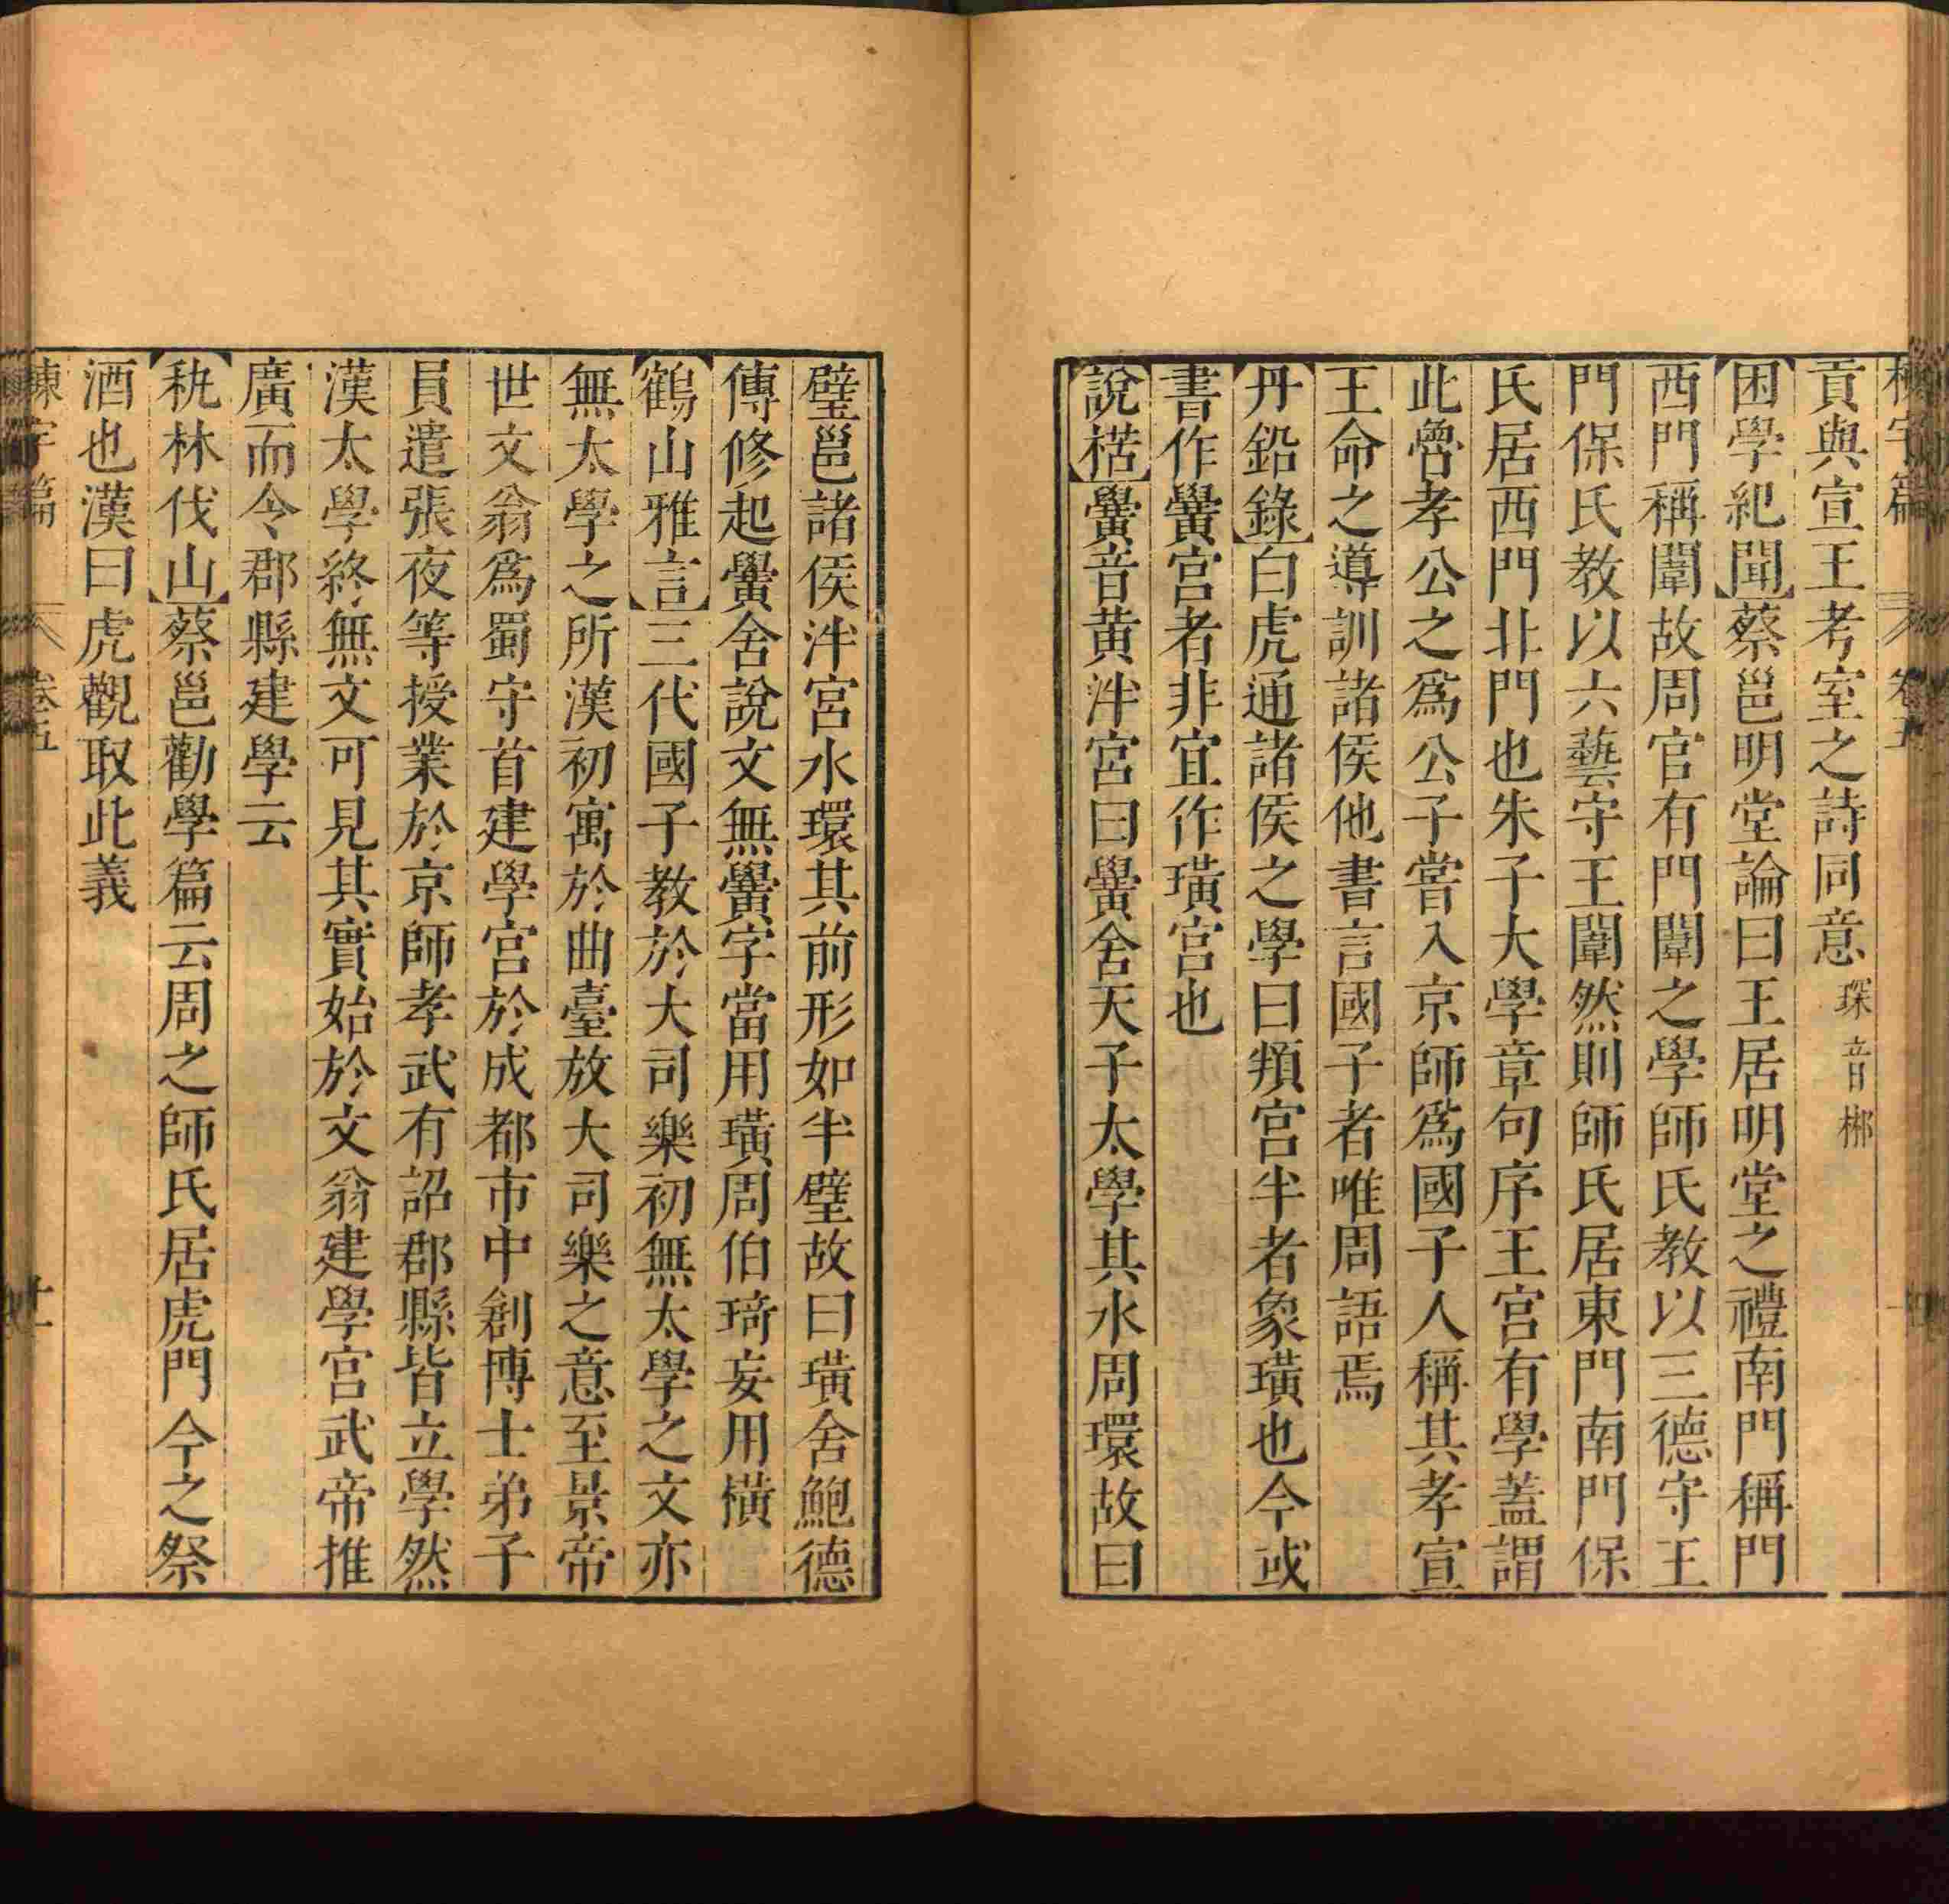 貢與宣王考室之詩同意 琛音郴
困學紀聞 蔡邕明堂論曰王居明堂之禮南門稱門
西門稱闈故周官有門闈之學師氏教以三德守王
門保氏教以六藝守王闈然則師氏居東門南門保
氏居西門北門也朱子大學章句序王宮有學蓋謂
此魯孝公之為公子嘗入京師為國子人稱其孝宣
王命之導訓諸侯他書言國子者唯周語焉
丹鉛錄 白虎通諸侯之學曰頖宮半者象璜也今或
書作黌宮者非宜作璜宮也
說楛 黌音黃泮宮曰黌舍天子太學其水周環故曰
璧邕諸侯泮宮水環其前形如半璧故曰璜舍鮑德
傳修起黌舍說文無黌字當用璜周伯琦妄用橫
鶴山雅言 三代國子教於大司樂初無太學之文亦
無太學之所漢初寓於曲臺放大司樂之意至景帝
世文翁為蜀守首建學宮於成都市中創博士弟子
員遣張夜等授業於京師孝武有詔郡縣皆立學然
漢太學終無文可見其實始於文翁建學宮武帝推
廣而令郡縣建學云
秇林伐山 蔡邕勸學篇云周之師氏居虎門今之祭
酒也漢曰虎觀取此義
卷五
十一